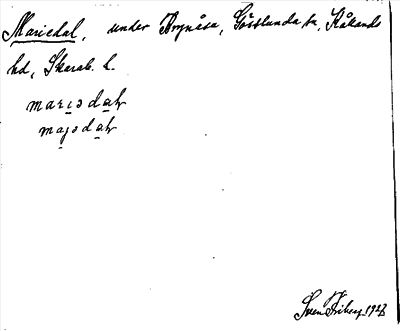 Mariedal, under Brynåsa, Gösslunda sn, Kålands
hd, Skarab. l.
marɩədaɫr
majədaɫr
Sven Friberg 1927